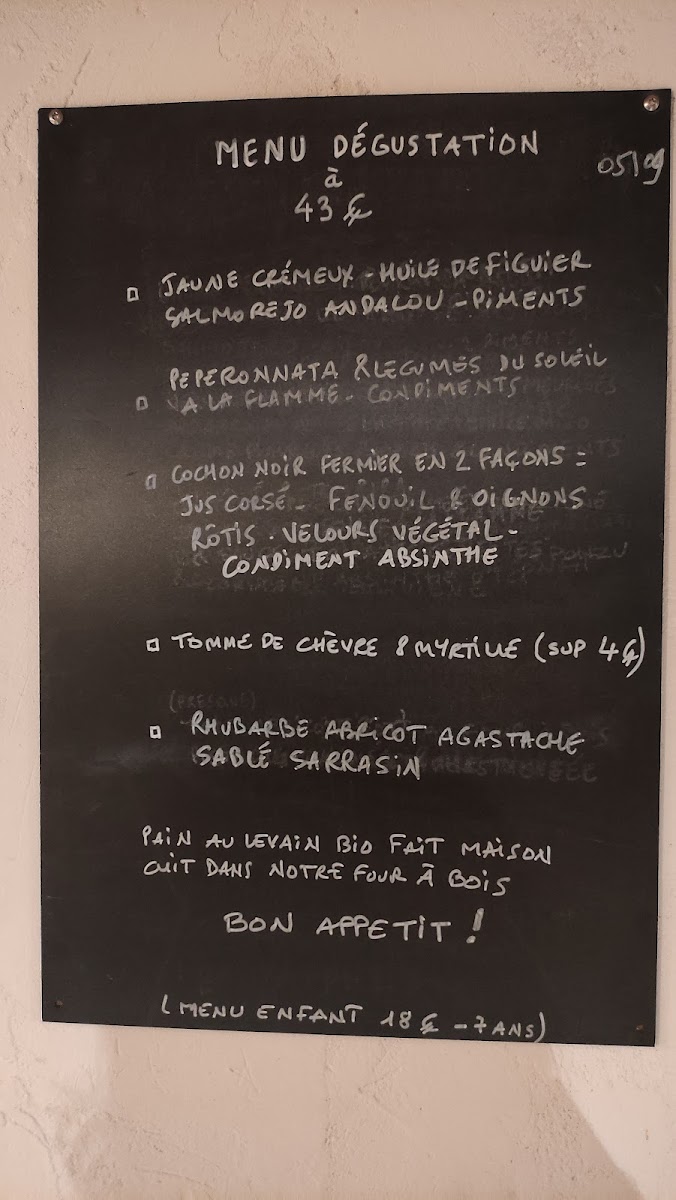 MENU DÉGUSTATION
05/09
à
43 €
JAUNE CRÉMEUX - HUILE DE FIGUIER
SALMOREJO ANDALOU - PIMENTS
PEPERONNATA & LEGUMES DU SOLEIL
A LA FLAMME - CONDIMENTS
COCHON NOIR FERMIER EN 2 FAÇONS =
JUS CORSÉ - FENOUIL & OIGNONS
RÔTIS - VELOURS VÉGÉTAL -
CONDIMENT ABSINTHE
TOMME DE CHÈVRE & MYRTILLE (SUP 4€)
RHUBARBE ABRICOT AGASTACHE
SABLÉ SARRASIN
PAIN AU LEVAIN BIO FAIT MAISON
CUIT DANS NOTRE FOUR À BOIS
BON APPETIT !
(MENU ENFANT 18 € - 7 ANS)